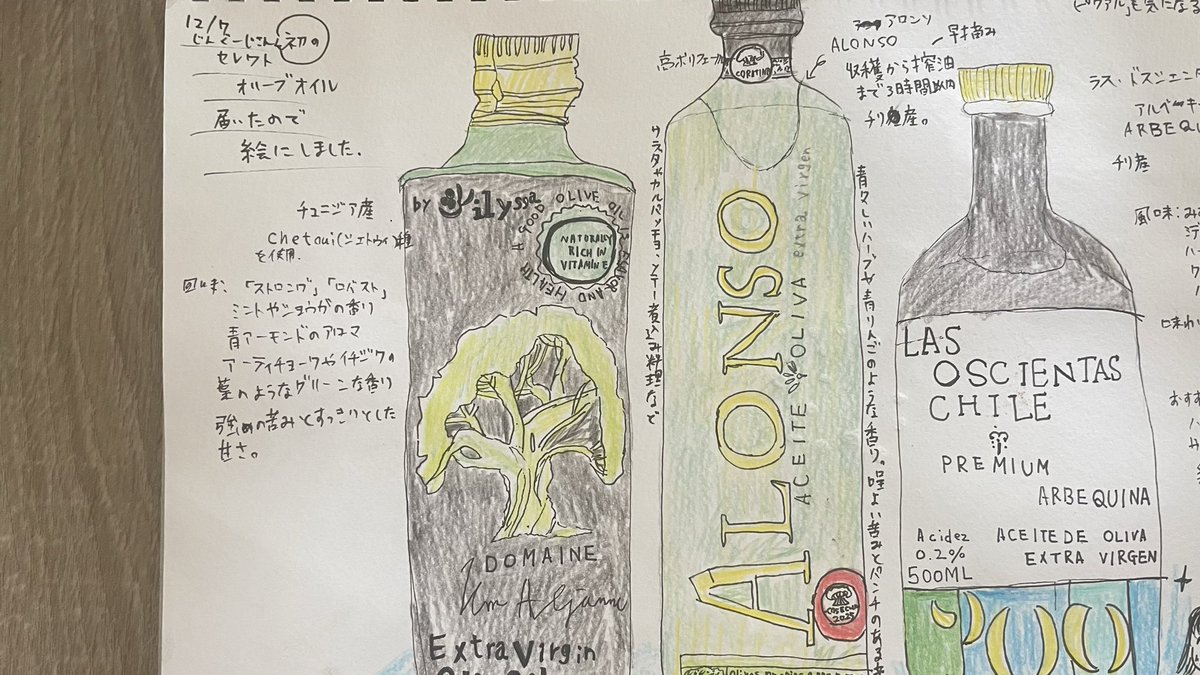 12/7
初の
セレクト
オリーブオイル
届いたので
絵にしました.
チュニジア産
Chetoui(シェトウイ)種
を使用.
風味:「ストロング」「ロバスト」
ミントやショウガの香り
青アーモンドのアロマ
アーティチョークやイチジクの
葉のようなグリーンな香り
強めの苦みとすっきりとした
甘さ。
by Jilyssa
A GOOD OLIVE OIL IS FLAVOR AND HEALTH
NATURALLY
RICH IN
VITAMINE
DOMAINE
Extra Virgin
サラダやカルパッチョ、ソテー煮込み料理など
高ポリフェノール
CORATINA
アロンソ
ALONSO
早摘み
収穫から搾油
まで3時間以内
チリ産。
ALONSO
ACEITE OLIVA extra virgen
COSECHA
2025
青々しいハーブや青りんごのような香り。程よい苦みとパンチのある
LAS
OSCIENTAS
CHILE
PREMIUM
ARBEQUINA
Acidez
0.2%
500ML
ACEITE DE OLIVA
EXTRA VIRGEN
も気になる
ラス・ドスシエンタ
アルベーキ
ARBEQU
チリ産
風味:み
味わ
おすす